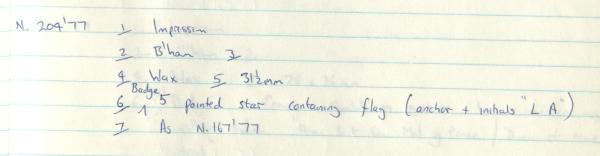 N. 204'77 1 Impression
2 B'ham 3
4 Wax 5 31½mm
6 Badge 5 pointed star containing flag (anchor + initials "L A")
7 As N.167'77